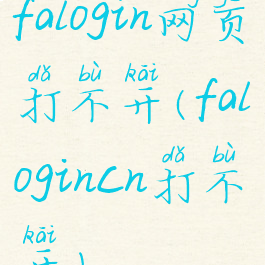 falogin网页
dǎ bù kāi
打不开(fal
dǎ bù
ogincn打不
kāi
开)